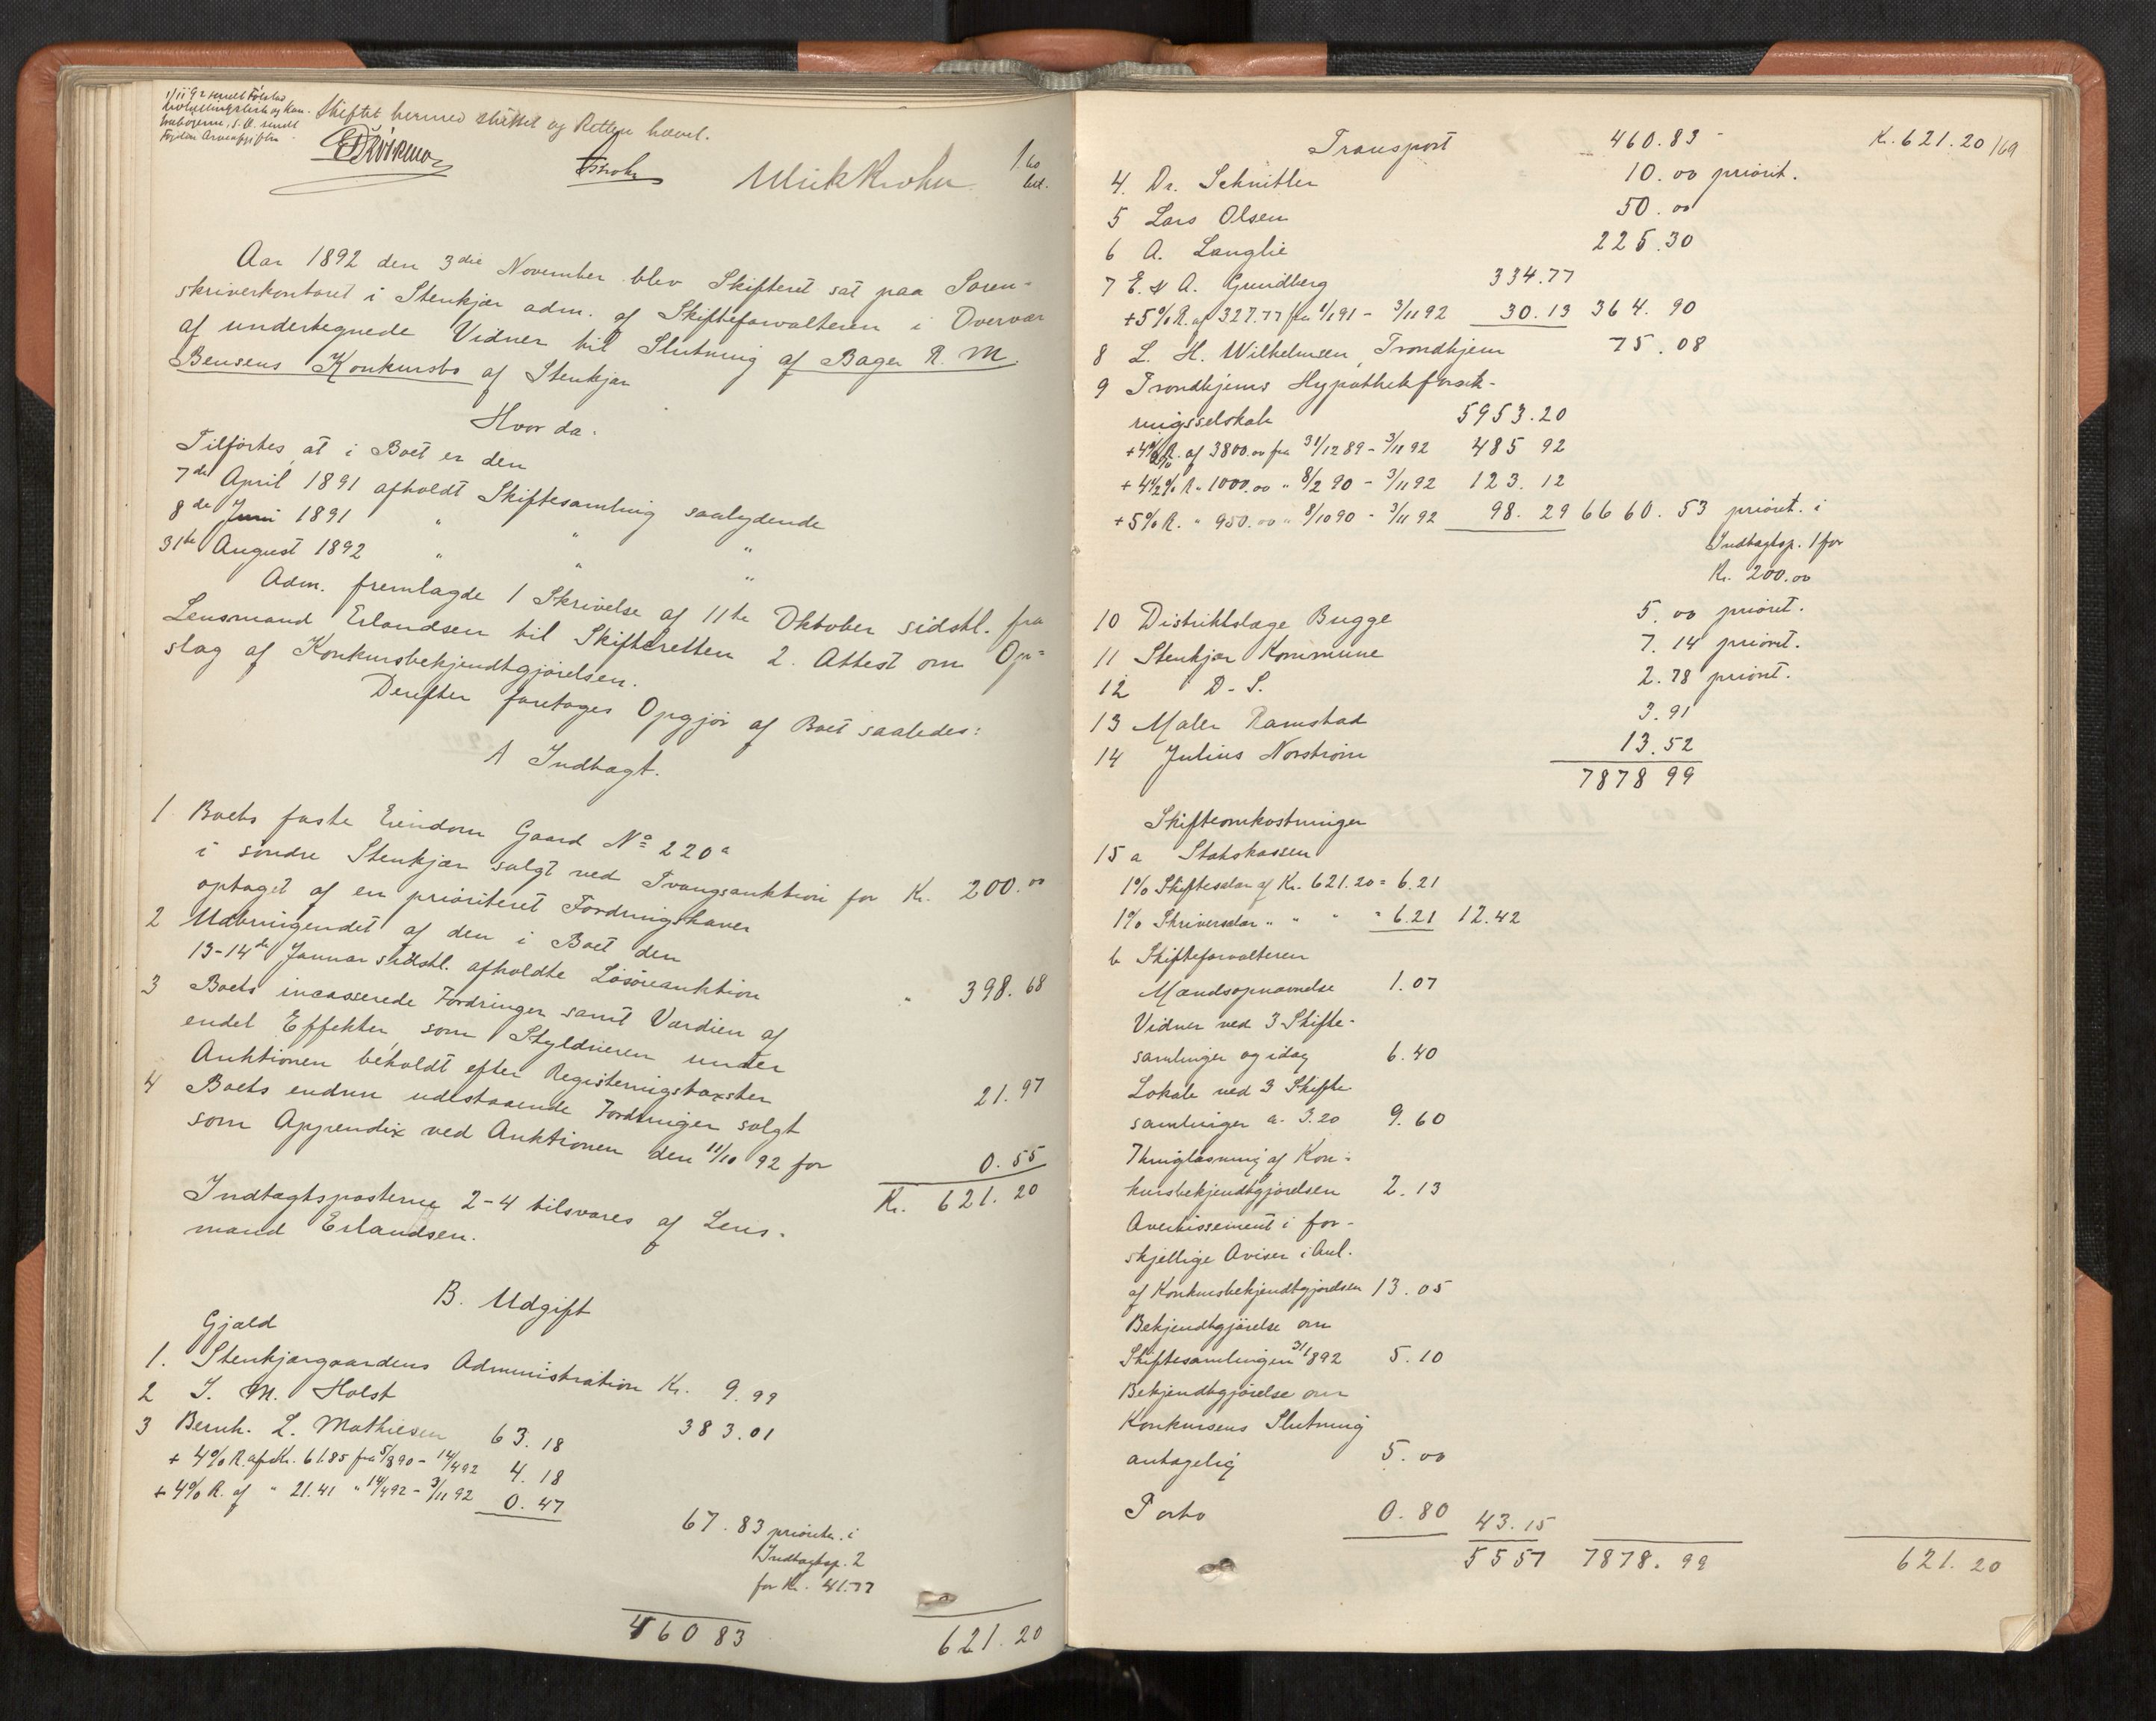 1/11 92 sendt
Skiftet hermed sluttet og Retten hævet.
Ulrik Krohn
Aar 1892 den 3die November blev Skifteret sat paa Soren-
skriverkontoret i Stenkjær adm. af Skifteforvalteren i Overvær
af undertegnede Vidner til Slutning af Bager R. M.
Bensens Konkursbo af Stenkjær
Hvor da.
Tilførtes, at i Boet er den
7de April 1891 afholdt Skiftesamling saalydende
8de Juni 1891 " " "
31te August 1892 " " "
Adm. fremlagde 1 Skrivelse af 11te Oktober sidstl. fra
Lensmand Erlandsen til Skifteretten 2. Attest om Op-
slag af Konkursbekjendtgjørelsen.
Derefter foretages Opgjør af Boet saaledes:
A Indtagt.
1 Boets faste Eiendom Gaard No 220a
i søndre Stenkjær solgt ved Tvangsauktion for Kr. 200.00
optaget af en prioriteret Fordringshaver
2 Udbringendet af den i Boet den
13-14de Januar sidstl. afholdte Løsøreauktion " 398.68
3 Boets incasserede Fordringer samt Værdien af
endel Effekter, som Skyldneren under
Auktionen beholdt efter Registeringstaxsten 21.97
4 Boets endnu udestaaende Fordringer solgt
som Appendix ved Auktionen den 11/10 92 for 0.55
Kr. 621.20
Indtægtsposterne 2-4 tilsvares af Lens-
mand Erlandsen.
B. Udgift
Gjæld
1. Stenkjærgaardens Administration Kr. 9.99
2 J. M. Holst 383.01
3 Bernh. L. Mathiesen 63.18
+ 4% R. af Kr. 61.85 fra 5/8 90 - 14/4 92 4.18
+ 4% R. af " 21.41 " 14/4 92 - 3/11 92 0.47
67.83 priorite. i
Indtægtsp. 2
for Kr. 41.77
460 83 621.20
Transport 460.83 Kr. 621.20 /69
4. Dr. Schnitler 10.00 priorit.
5 Lars Olsen 50.00
6 A. Langlie 225.30
7 E. & A. Grundberg 334.77
+5% R. af 327.77 fra 1/1 91 - 3/11 92 30.13 364.90
8 L. H. Wilhelmsen, Trondhjem 75.08
9 Trondhjems Hypothekforsik-
ringsselskab 5953.20
+4% R. af 3800.00 fra 31/12 89 - 3/11 92 485 92
+ 4½% R. " 1000.00 " 8/2 90 - 3/11 92 123.12
+5% R. " 950.00 " 8/10 90 - 3/11 92 98.29 6660.53 priorit. i
Indtægtsp. 1 for
Kr. 200.00
10 Distriktslæge Bugge 5.00 priorit.
11 Stenkjær Kommune 7.14 priorit.
12 D. S. 2.78 priorit.
13 Maler Ramstad 3.91
14 Julius Norstrøm 13.52
7878 99
Skifteomkostninger
15 a Statskassen
1% Skiftesalær af Kr. 621.20 = 6.21
1% Skriversalær " " " = 6.21 12.42
b Skifteforvalteren
Mændsopnævnelse 1.07
Vidner ved 3 Skifte-
samlinger og idag 6.40
Lokale ved 3 Skifte
samlinger a. 3.20 9.60
Thinglæsning af Kon-
kursbekjendtgjørelsen 2.13
Avertissement i for-
skjellige Aviser i Anl.
af Konkursbekjendtgjørelsen 13.05
Bekjendtgjørelse om
Skiftesamlingen 31/8 92 5.10
Bekjendtgjørelse om
Konkursens Slutning
antagelig 5.00
Porto 0.80 43.15
55 57 7878.99 621.20